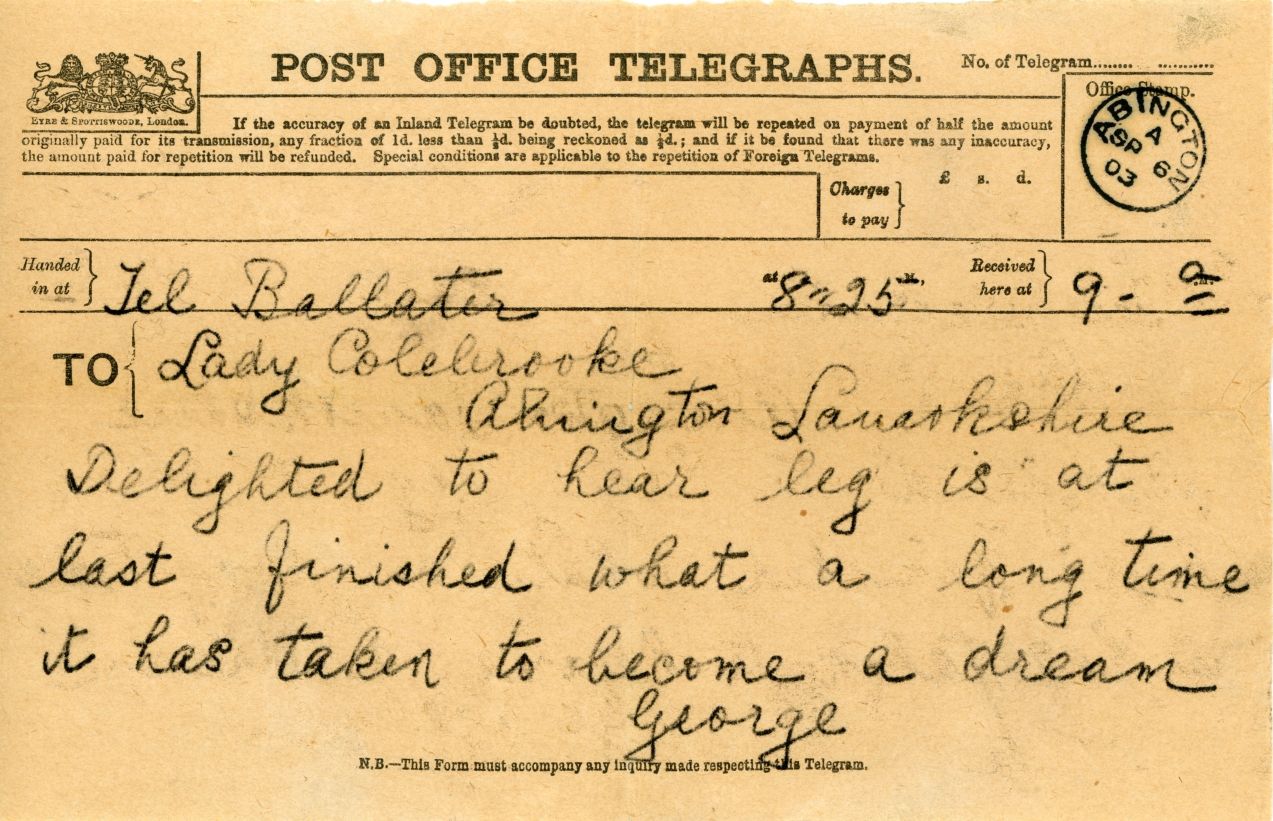 POST OFFICE TELEGRAPHS.
No. of Telegram........ ...........
Office Stamp.
EYRE & SPOTTISWOODE, London.
If the accuracy of an Inland Telegram be doubted, the telegram will be repeated on payment of half the amount
originally paid for its transmission, any fraction of 1d. less than ½d. being reckoned as ½d.; and if it be found that there was any inaccuracy,
the amount paid for repetition will be refunded. Special conditions are applicable to the repetition of Foreign Telegrams.
ABINGTON
A
SP 6
03
Charges to pay } £ s. d.
Handed in at } Tel Ballater at 8"25 M. Received here at } 9 - a .M.
TO { Lady Colebrooke
Abington Lanarkshire
Delighted to hear leg is at
last finished what a long time
it has taken to become a dream
George
N.B.—This Form must accompany any inquiry made respecting this Telegram.